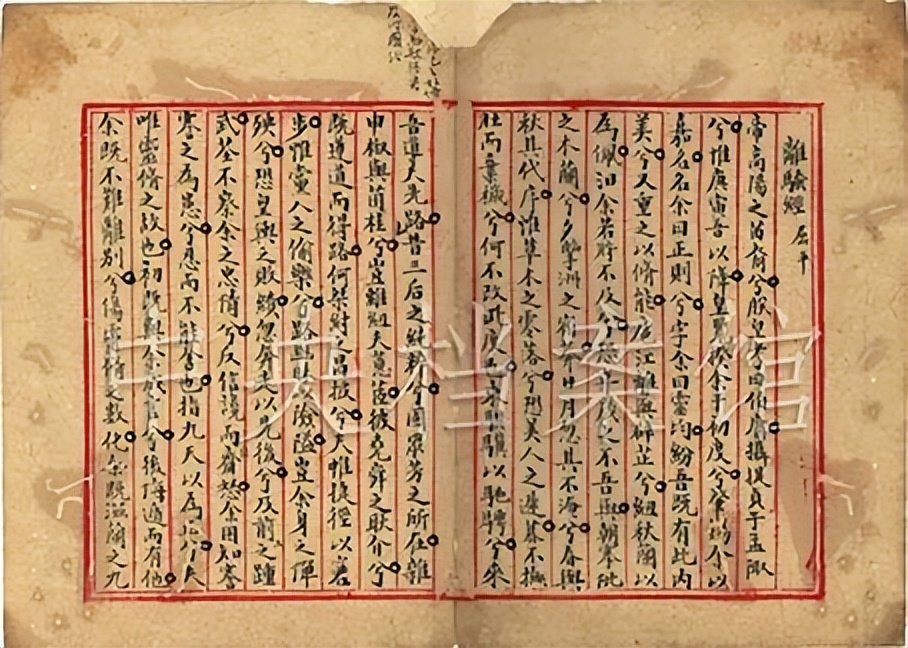 離騷經 屈平
帝高陽之苗裔兮朕皇考曰伯庸攝提貞于孟陬
兮惟庚寅吾以降皇覽揆余于初度兮肇錫余以
嘉名名余曰正則兮字余曰靈均紛吾既有此內
美兮又重之以脩能扈江離與辟芷兮紉秋蘭以
為佩汩余若將不及兮恐年歲之不吾與朝搴阰
之木蘭兮夕攬洲之宿莽日月忽其不淹兮春與
秋其代序惟草木之零落兮恐美人之遲暮不撫
壯而棄穢兮何不改此度也乘騏驥以馳騁兮來
吾道夫先路昔三后之純粹兮固眾芳之所在雜
申椒與菌桂兮豈維紉夫蕙茝彼堯舜之耿介兮
既遵道而得路何桀紂之昌披兮夫惟捷徑以窘
步惟黨人之偷樂兮路幽昧以險隘豈余身之憚
殃兮恐皇輿之敗績忽奔走以先後兮及前之踵
武荃不察余之忠情兮反信讒而齌怒余固知謇
謇之為患兮忍而不能舍也指九天以為正兮夫
唯靈脩之故也初既與余成言兮後悔遁而有他
余既不難離別兮傷靈脩之數化余既滋蘭之九
中央档案馆